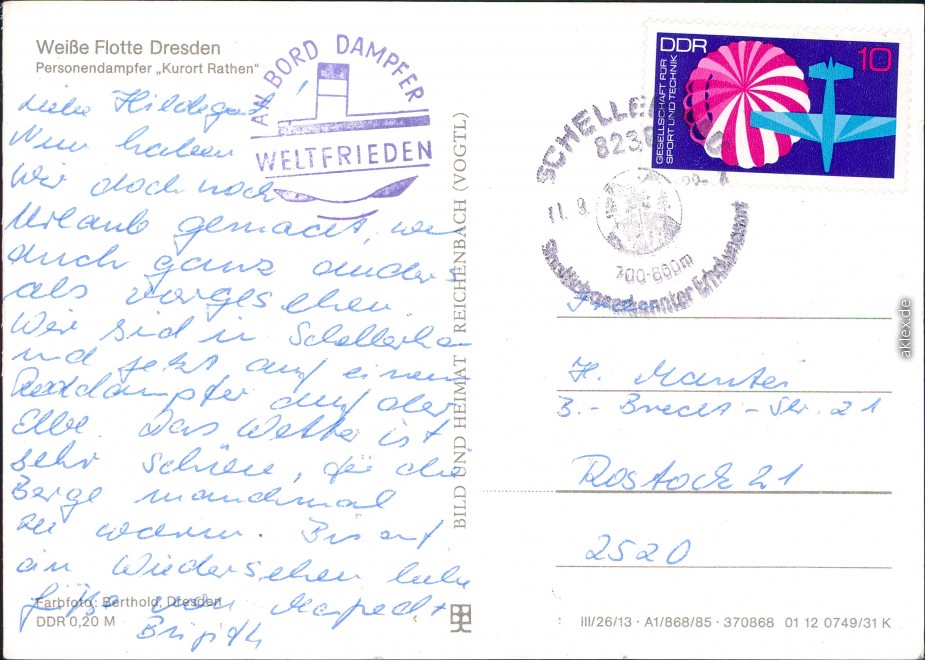 Weiße Flotte Dresden
Personendampfer „Kurort Rathen“
AN BORD DAMPFER
WELTFRIEDEN
Liebe Hildegard!
Nun haben
wir doch noch
Urlaub gemacht, wenn
auch ganz anders
als vorgesehen.
Wir sind in Schellerhau
und jetzt auf einem
Raddampfer auf der
Elbe. Das Wetter ist
sehr schön, für die
Berge manchmal
zu warm. Bis auf
ein Wiedersehen liebe
Grüße von
Brigitte
Farbfoto: Berthold, Dresden
DDR 0,20 M
BILD UND HEIMAT REICHENBACH (VOGTL)
DDR 10
GESELLSCHAFT FÜR
SPORT UND TECHNIK
11.9.
700-800m
Staatlich anerkannter Erholungsort
H.
B.-Brecht-Str. 21
Rostock 21
2520
III/26/13 · A1/868/85 · 370868 01 12 0749/31 K
aklex.de